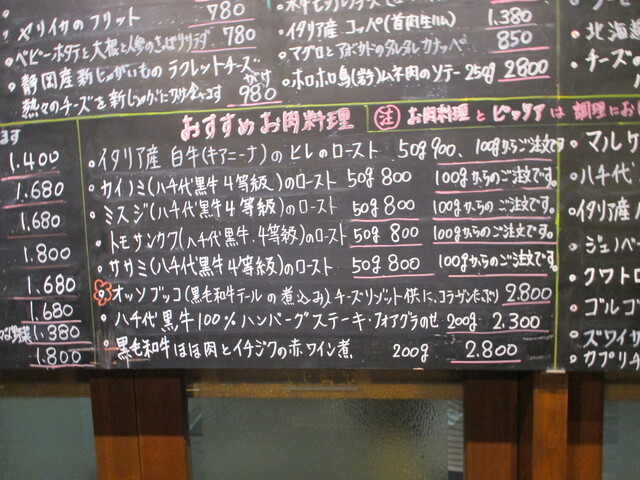 メリイカのフリット 780
ベビーホタテと大根と人参のさっぱりサラダ 780
静岡産新じゃがいものラクレットチーズがけ
熱々のチーズを新じゃがにかけ 980
イタリア産 コッパ(首肉生ハム) 1.380
マグロとアボカドのタルタルカナッペ 850
ホロホロ鳥(岩手)ムネ肉のソテー 250g 2800
北海
チーズの
ます
1.400
1.680
1.680
1.800
1.680
1.680
1.380
1.800
おすすめお肉料理
注 お肉料理とピッツアは調理にお
イタリア産 白牛(キアニーナ)のヒレのロースト 50g 900、100gからご注文です
カイノミ(八千代黒牛4等級)のロースト 50g 800 100gからのご注文です。
ミスジ(八千代黒牛4等級)のロースト 50g 800 100gからのご注文です。
トモサンカク(八千代黒牛.4等級)のロースト 50g 800 100gからのご注文です。
ササミ(八千代黒牛4等級)のロースト 50g 800 100gからのご注文です。
オッソブッコ(黒毛和牛テールの煮込み)チーズリゾット供に、コラーゲンたっぷり 2.800
八千代黒牛100%ハンバーグステーキ・フォアグラのせ 200g 2.300
黒毛和牛ほほ肉とイチジクの赤ワイン煮 200g 2.800
マルゲ
ハチ代
イタリア産
ジェノベ
クワトロ
ゴルゴ
ズワイガ
カプリチ